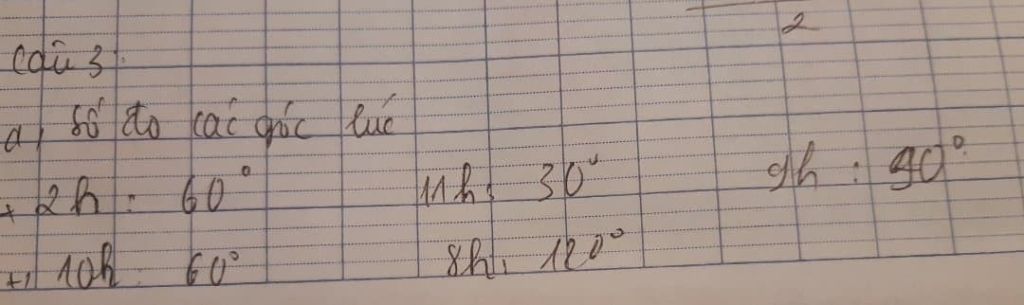 2
Câu 3:
a, Số đo các góc lúc
+ 2h : 60° 11h : 30° 9h : 90°
+, 10h : 60° 8h : 120°